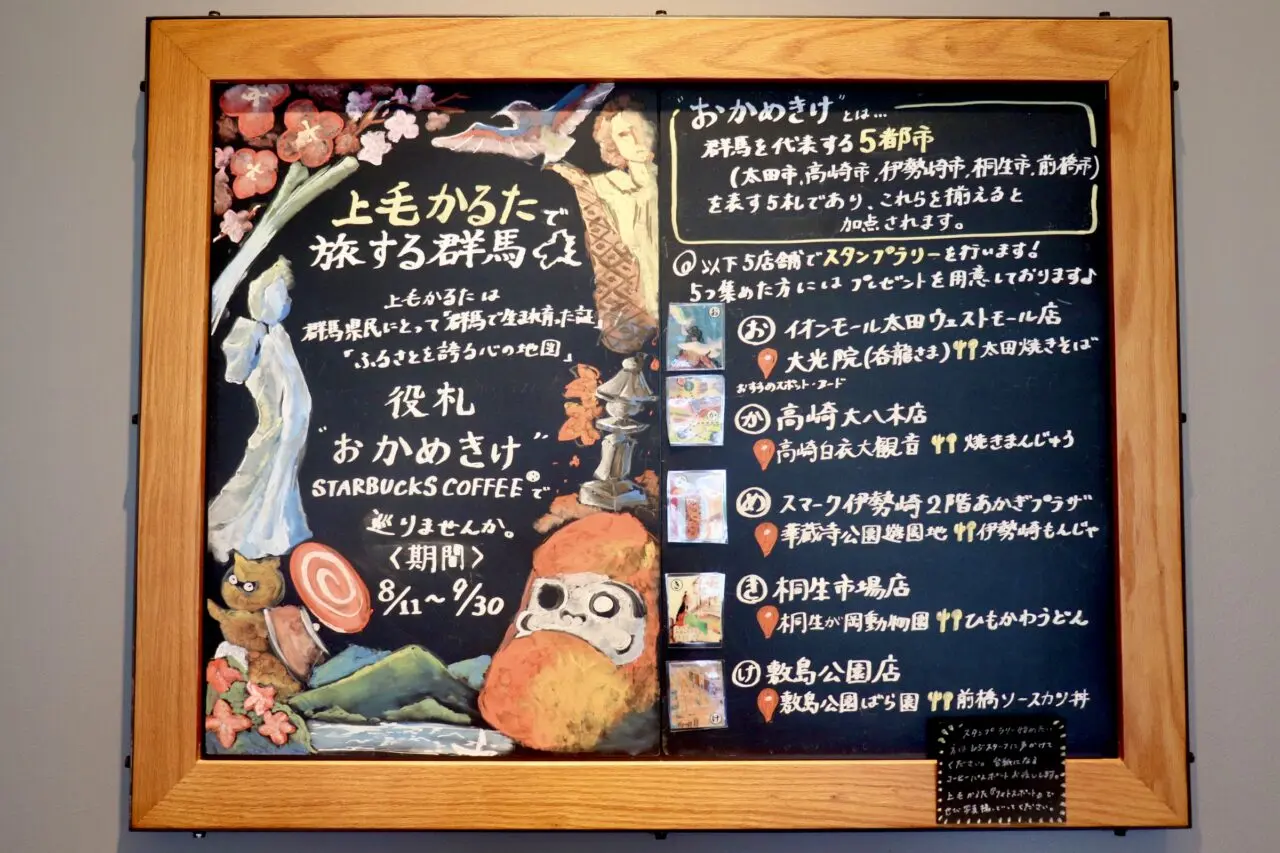 上毛かるたで
旅する群馬
上毛かるたは
群馬県民にとって「群馬で生まれ育った証」
「ふるさとを誇る心の地図」
役札
"おかめきけ"
STARBUCKS COFFEEで
巡りませんか。
〈期間〉
8/11〜9/30
"おかめきけ"とは…
群馬を代表する5都市
(太田市,高崎市,伊勢崎市,桐生市,前橋市)
を表す5札であり、これらを揃えると
加点されます。
以下5店舗でスタンプラリーを行います!
5つ集めた方にはプレゼントを用意しております♪
お イオンモール太田ウェストモール店
大光院(呑龍さま) 太田焼きそば
おすすめスポット・フード
か 高崎大八木店
高崎白衣大観音 焼きまんじゅう
め スマーク伊勢崎2階あかぎプラザ
華蔵寺公園遊園地 伊勢崎もんじゃ
き 桐生市場店
桐生が岡動物園 ひもかわうどん
け 敷島公園店
敷島公園ばら園 前橋ソースカツ丼
スタンプラリー
方はレジスタッフに声かけて
ください。台紙になる
コーヒーパスポートお渡しします。
上毛かるた